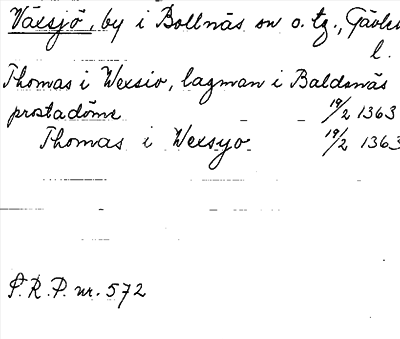 Växsjö, by i Bollnäs sn o. tg., Gävleb.
l.
Thomas i Wexsio, lagman i Baldsnäs
prostadöme - - 19/2 1363
Thomas i Wexsyo 19/2 1363
S.R.P. nr. 572